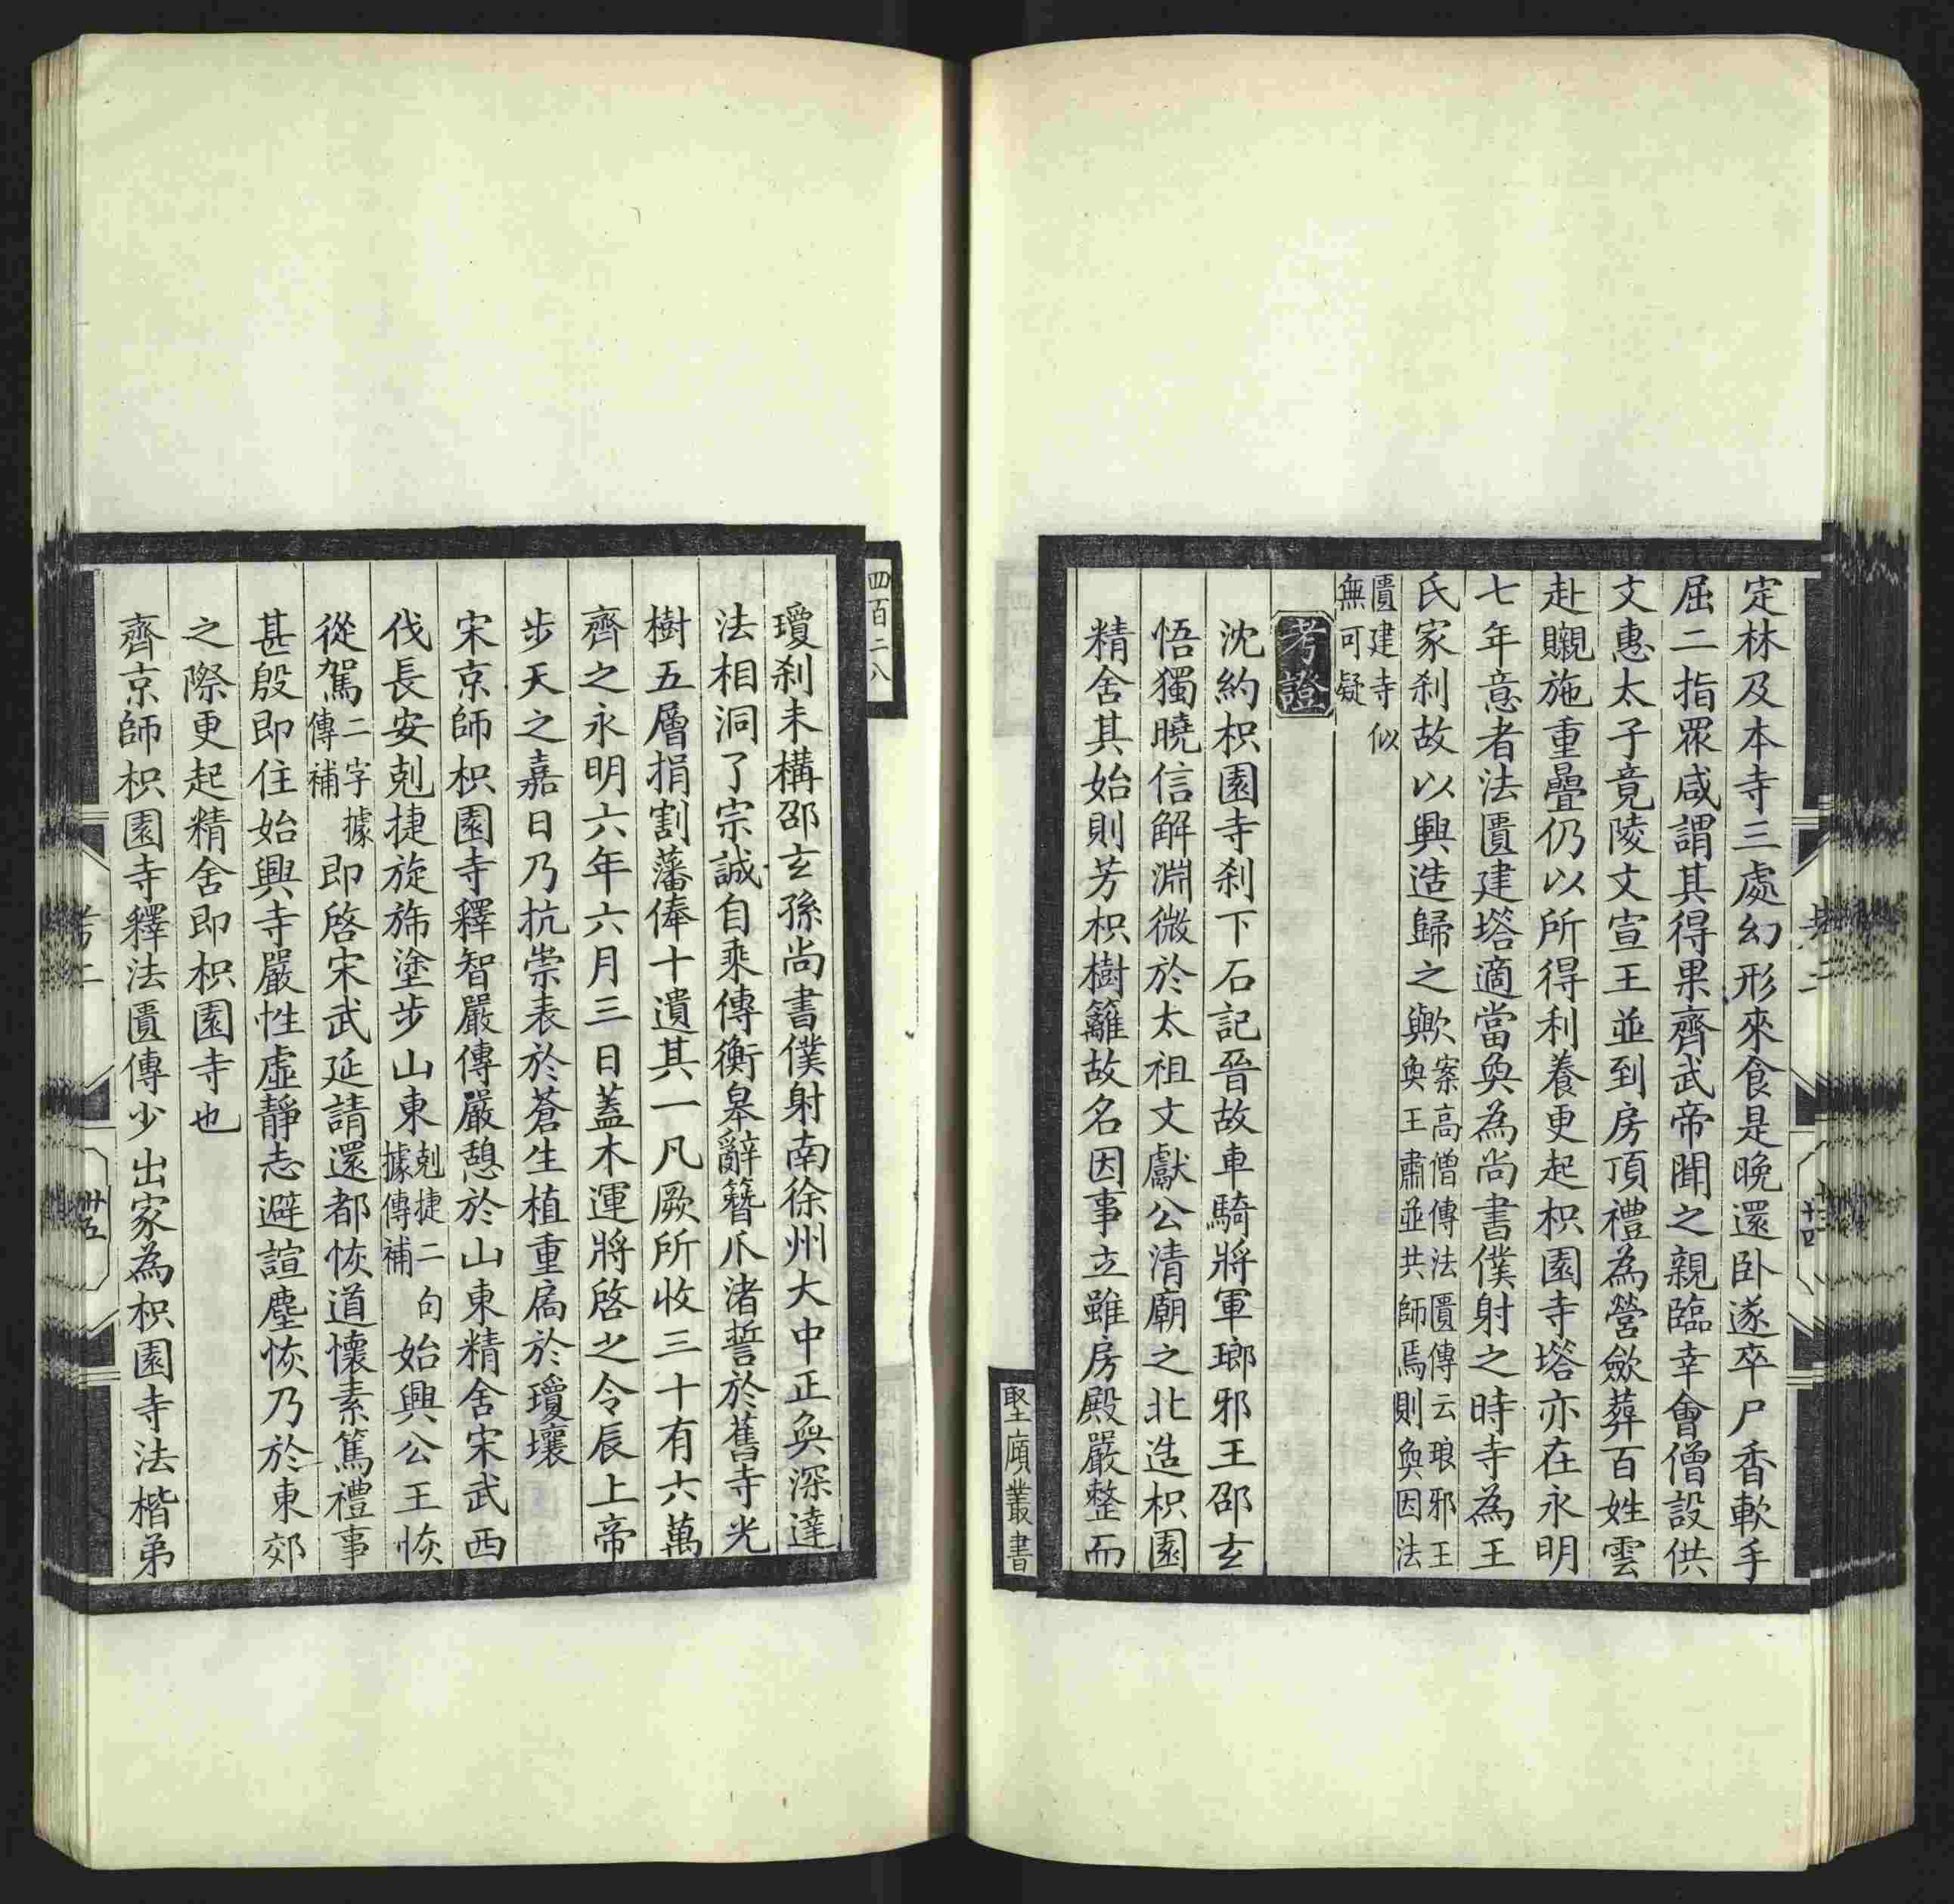 定林及本寺三處幻形來食是晚還卧遂卒尸香軟手
屈二指眾咸謂其得果齊武帝聞之親臨幸會僧設供
文惠太子竟陵文宣王並到房頂禮為營斂葬百姓雲
赴䞋施重疊仍以所得利養更起枳園寺塔亦在永明
七年意者法匱建塔適當奐為尚書僕射之時寺為王
氏家刹故以興造歸之歟案高僧傳法匱傳云琅邪王奐王肅並共師焉則奐因法
匱建寺似無可疑
考證
沈約枳園寺刹下石記晉故車騎將軍瑯邪王邵玄
悟獨曉信解淵微於太祖文獻公清廟之北造枳園
精舍其始則芳枳樹籬故名因事立雖房殿嚴整而
堅廎叢書
四百二八
瓊刹未構邵玄孫尚書僕射南徐州大中正奐深達
法相洞了宗誠自乘傳衡皋辭簪爪渚誓於舊寺光
樹五層捐割藩俸十遺其一凡厥所收三十有六萬
齊之永明六年六月三日蓋木運將啓之令辰上帝
步天之嘉日乃抗崇表於蒼生植重扃於瓊壤
宋京師枳園寺釋智嚴傳嚴憩於山東精舍宋武西
伐長安剋捷旋斾塗步山東剋捷二句據傳補始興公王恢
從駕二字據傳補即啓宋武延請還都恢道懷素篤禮事
甚殷即住始興寺嚴性虛靜志避諠塵恢乃於東郊
之際更起精舍即枳園寺也
齊京師枳園寺釋法匱傳少出家為枳園寺法楷弟